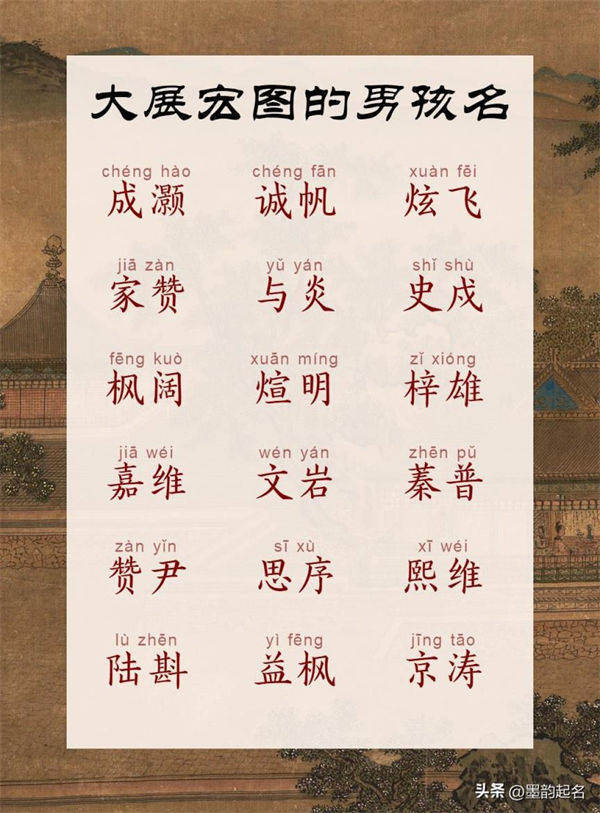 大展宏图的男孩名
chéng hào chéng fān xuàn fēi
成灏 诚帆 炫飞
jiā zàn yǔ yán shǐ shù
家赞 与炎 史戍
fēng kuò xuān míng zǐ xióng
枫阔 煊明 梓雄
jiā wéi wén yán zhēn pǔ
嘉维 文岩 蓁普
zàn yǐn sī xù xī wéi
赞尹 思序 熙维
lù zhēn yì fēng jīng tāo
陆斟 益枫 京涛
头条 @墨韵起名